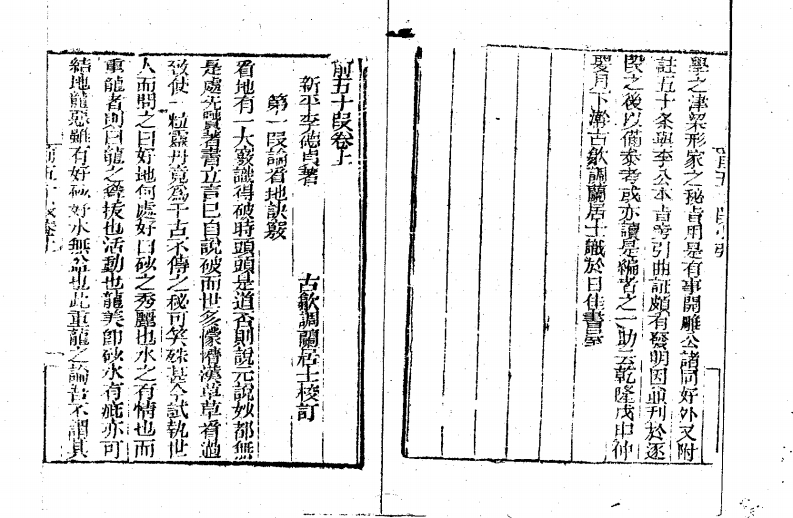 學之津梁形家之秘旨用是有事開雕公諸同好外又附
註五十条與李公本旨旁引曲証頗有發明因並刊於逐
段之後以備叅考或亦讀是編者之一助云乾隆戊申仲
夏月下澣古歙調蘭居士識於日佳書室
前五十段卷上
新平李德貞著 古歙調蘭居士校訂
第一段論看地訣竅
看地有一大竅識得破時頭頭是道否則說元說妙都無
是處先賢著書立言已自說破而世多懞懂漢草草看過
致使一粒靈丹竟為千古不傳之秘可笑殊甚今試執世
人而問之曰好地何處好曰砂之秀麗也水之有情也而
重龍者則曰龍之聳拔也活動也龍美即砂水有疵亦可
結地龍惡雖有好砂好水無益也此重龍之論吾不謂其
前五十段卷上